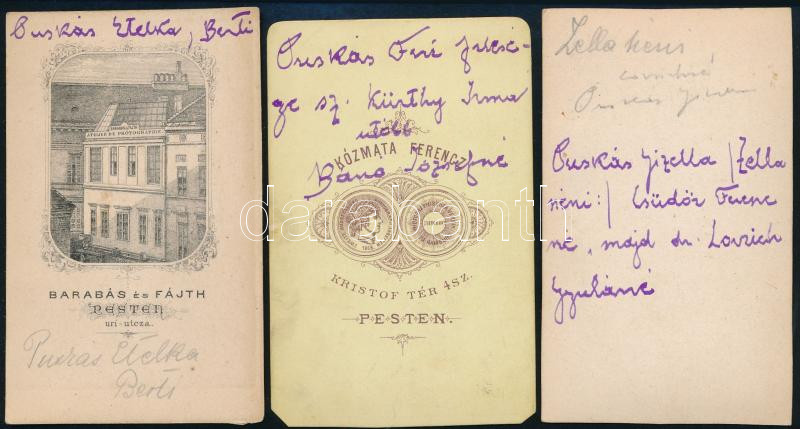 Puskás Etelka, Berti
ATELIER DE PHOTOGRAPHIE
BARABÁS és FÁJTH
PESTEN
uri-utcza.
Puskás Etelka
Berti
Puskás Feri felesé-
ge sz. Kürthy Irma
utóbb
KOZMATA FERENCZ
Bánó Józsefné
KRISTOF TÉR 4SZ.
PESTEN.
Zella néni
Puskás Gizella
Puskás Gizella /Zella
néni:/ Csüdör Ferenc
né, majd dr. Lovrich
Gyuláné
darabanth